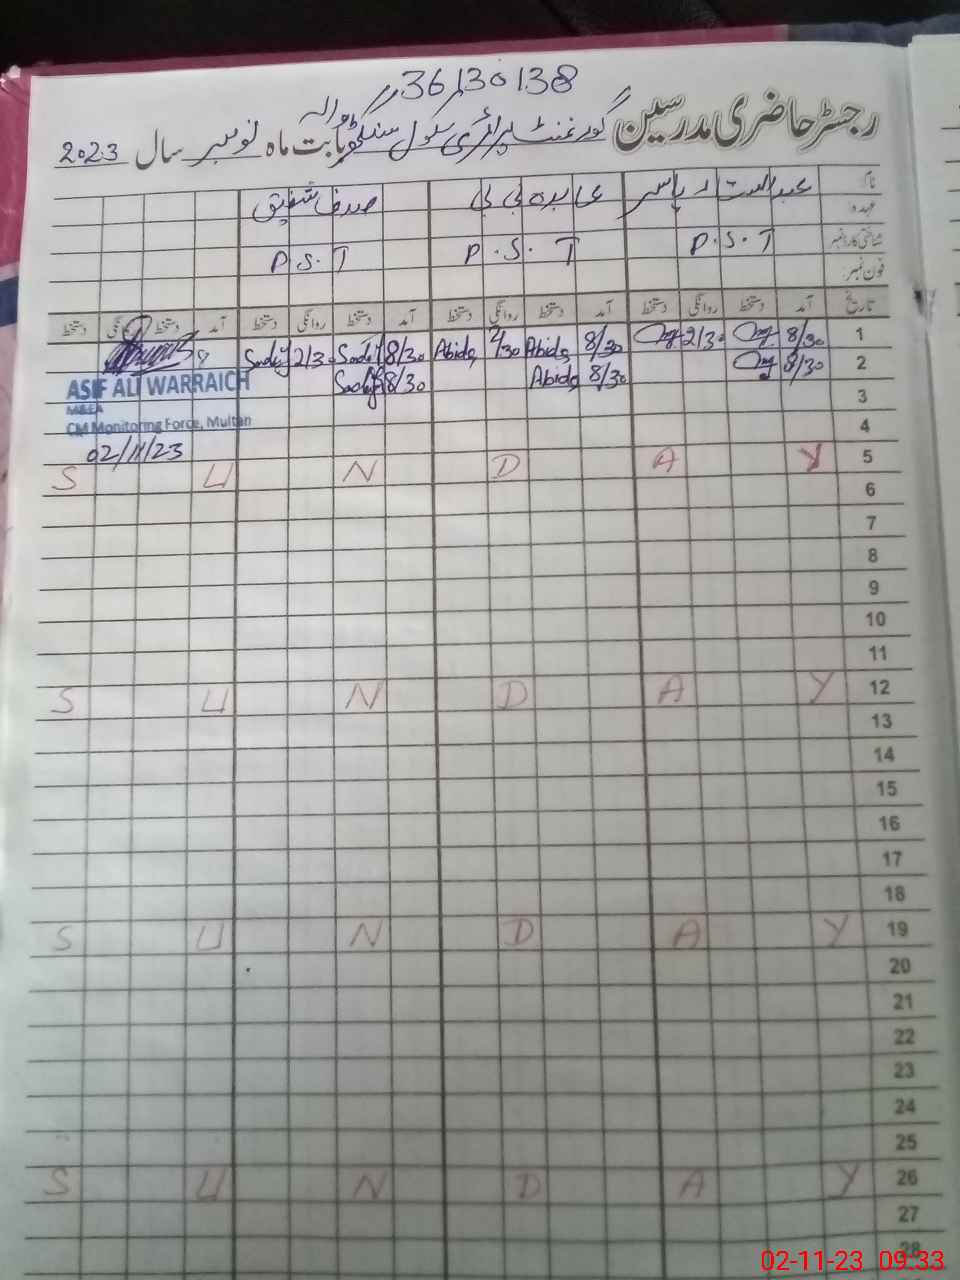 36130138
رجسٹر حاضری مدرسین گورنمنٹ پرائمری سکول والہ بابت ماہ نومبر سال 2023
نام عبدالستار یاسر عابدہ بی بی صدف شفیق
عہدہ:
شناختی کارڈ نمبر P.S.T P.S.T P.S.T
فون نمبر:
تاریخ آمد دستخط روانگی دستخط آمد دستخط روانگی دستخط آمد دستخط روانگی دستخط آمد دستخط روانگی دستخط
1 8/30 2/30 8/30 Abida /30 Abida 8/30 Sadif 2/30 Sadif
2 8/30 8/30 Abida 8/30 Sadif
ASIF ALI WARRAICH
M&EA
3
CM Monitoring Force, Multan
4
02/11/23
S U N D A Y 5
6
7
8
9
10
11
S U N D A Y 12
13
14
15
16
17
18
S U N D A Y 19
20
21
22
23
24
25
S U N D A Y 26
27
28
02-11-23 09:33